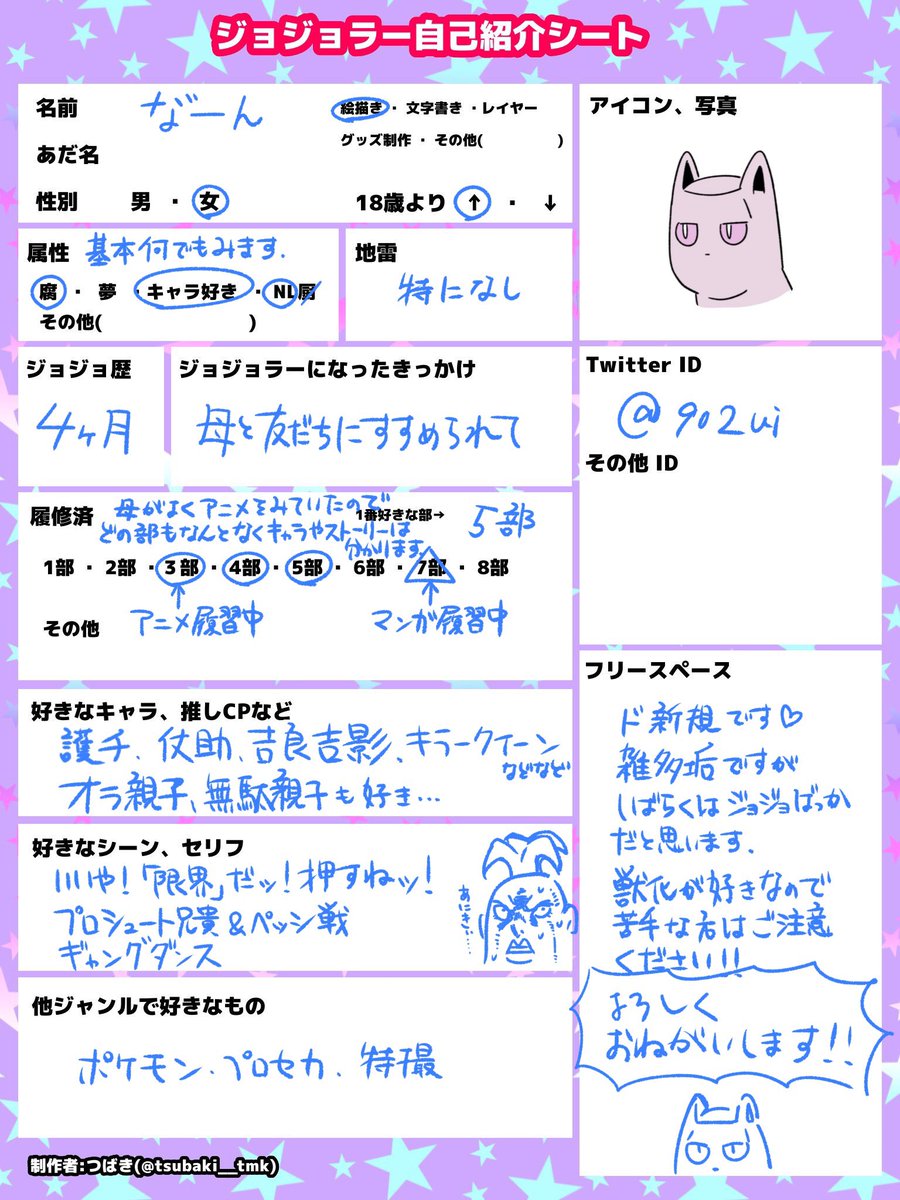 ジョジョラー自己紹介シート
名前 なーん
絵描き ・ 文字書き ・レイヤー
グッズ制作 ・ その他( )
あだ名
性別 男 ・ 女
18歳より ↑ ・ ↓
アイコン、写真
属性 基本何でもみます.
腐 ・ 夢 ・キャラ好き ・ NL厨
その他( )
地雷
特になし
ジョジョ歴
4ヶ月
ジョジョラーになったきっかけ
母と友だちにすすめられて
Twitter ID
@902ui
その他 ID
履修済 母がよくアニメをみていたので
どの部もなんとなくキャラやストーリーは
分かります.
1番好きな部→ 5部
1部 ・ 2部 ・ 3部 ・ 4部 ・ 5部 ・ 6部 ・ 7部 ・ 8部
↑ ↑
その他 アニメ履習中 マンガ履習中
好きなキャラ、推しCPなど
護チ、仗助、吉良吉影、キラークイーン
などなど
オラ親子、無駄親子も好き…
好きなシーン、セリフ
いや!「限界」だッ!押すねッ!
プロシュート兄貴&ペッシ戦
ギャングダンス
あにき
他ジャンルで好きなもの
ポケモン、プロセカ、特撮
フリースペース
ド新規です♡
雑多垢ですが
しばらくはジョジョばっか
だと思います.
獣化が好きなので
苦手な方はご注意
ください!!
よろしく
おねがいします!!
制作者:つばき(@tsubaki__tmk)